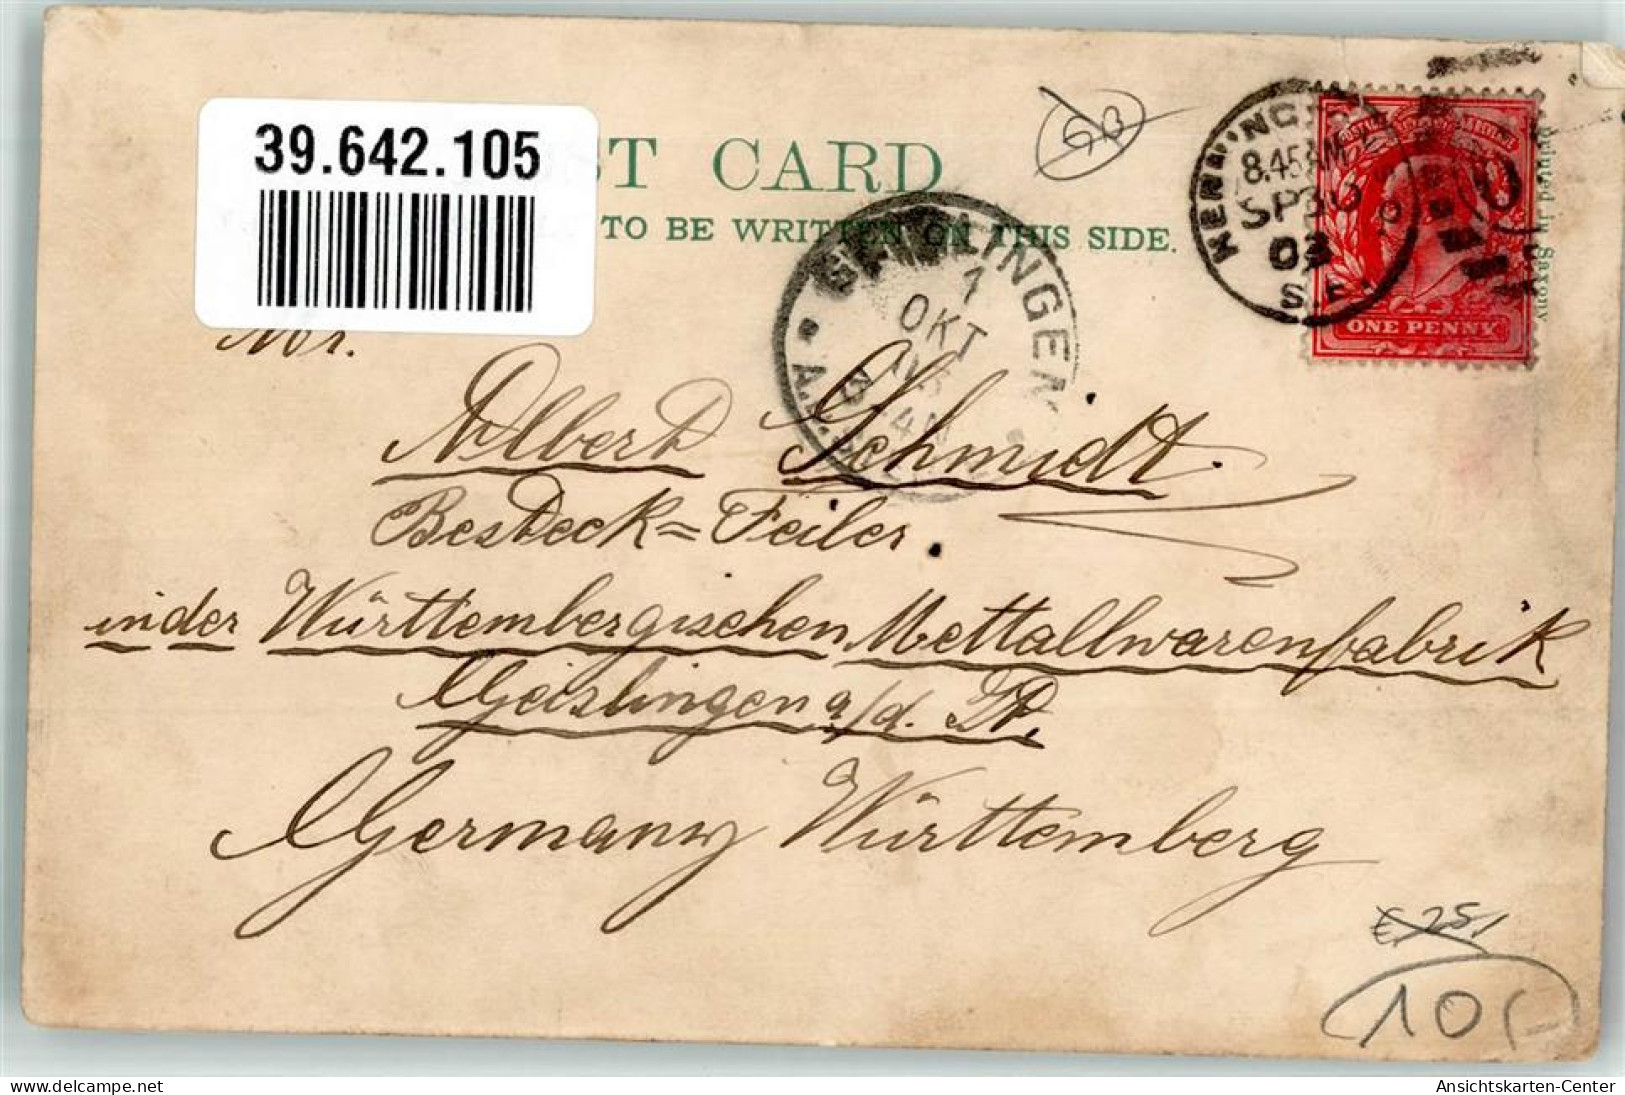 39.642.105
ST CARD
TO BE WRITTEN ON THIS SIDE.
KENNINGTON
8.45 AM
SP 30
03
S.E.
ONE PENNY
printed in Saxony
GEISLINGEN
1
OKT
Mr.
Albert Schmidt.
Besteck=Feiler.
in der Württembergischen Mettallwarenfabrik
Geislingen a/d. St.
Germany Württemberg
€ 25,
10,-
39642105.jpg
Ansichtskarten-Center